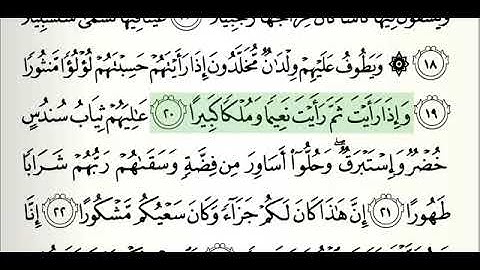 وَيُسْقَوْنَ فِيهَا كَأْسًا كَانَ مِزَاجُهَا زَنجَبِيلًا ۝١٧ عَيْنًا فِيهَا تُسَمَّىٰ سَلْسَبِيلًا
۝١٨ ۞ وَيَطُوفُ عَلَيْهِمْ وِلْدَٰنٌ مُّخَلَّدُونَ إِذَا رَأَيْتَهُمْ حَسِبْتَهُمْ لُؤْلُؤًا مَّنثُورًا
۝١٩ وَإِذَا رَأَيْتَ ثَمَّ رَأَيْتَ نَعِيمًا وَمُلْكًا كَبِيرًا ۝٢٠ عَٰلِيَهُمْ ثِيَابُ سُندُسٍ
خُضْرٌ وَإِسْتَبْرَقٌ ۖ وَحُلُّوٓا۟ أَسَاوِرَ مِن فِضَّةٍ وَسَقَىٰهُمْ رَبُّهُمْ شَرَابًا
طَهُورًا ۝٢١ إِنَّ هَٰذَا كَانَ لَكُمْ جَزَآءً وَكَانَ سَعْيُكُم مَّشْكُورًا ۝٢٢ إِنَّا